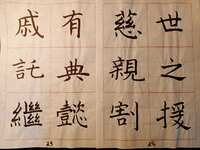 世之援
慈親割
有典懿
戚託繼